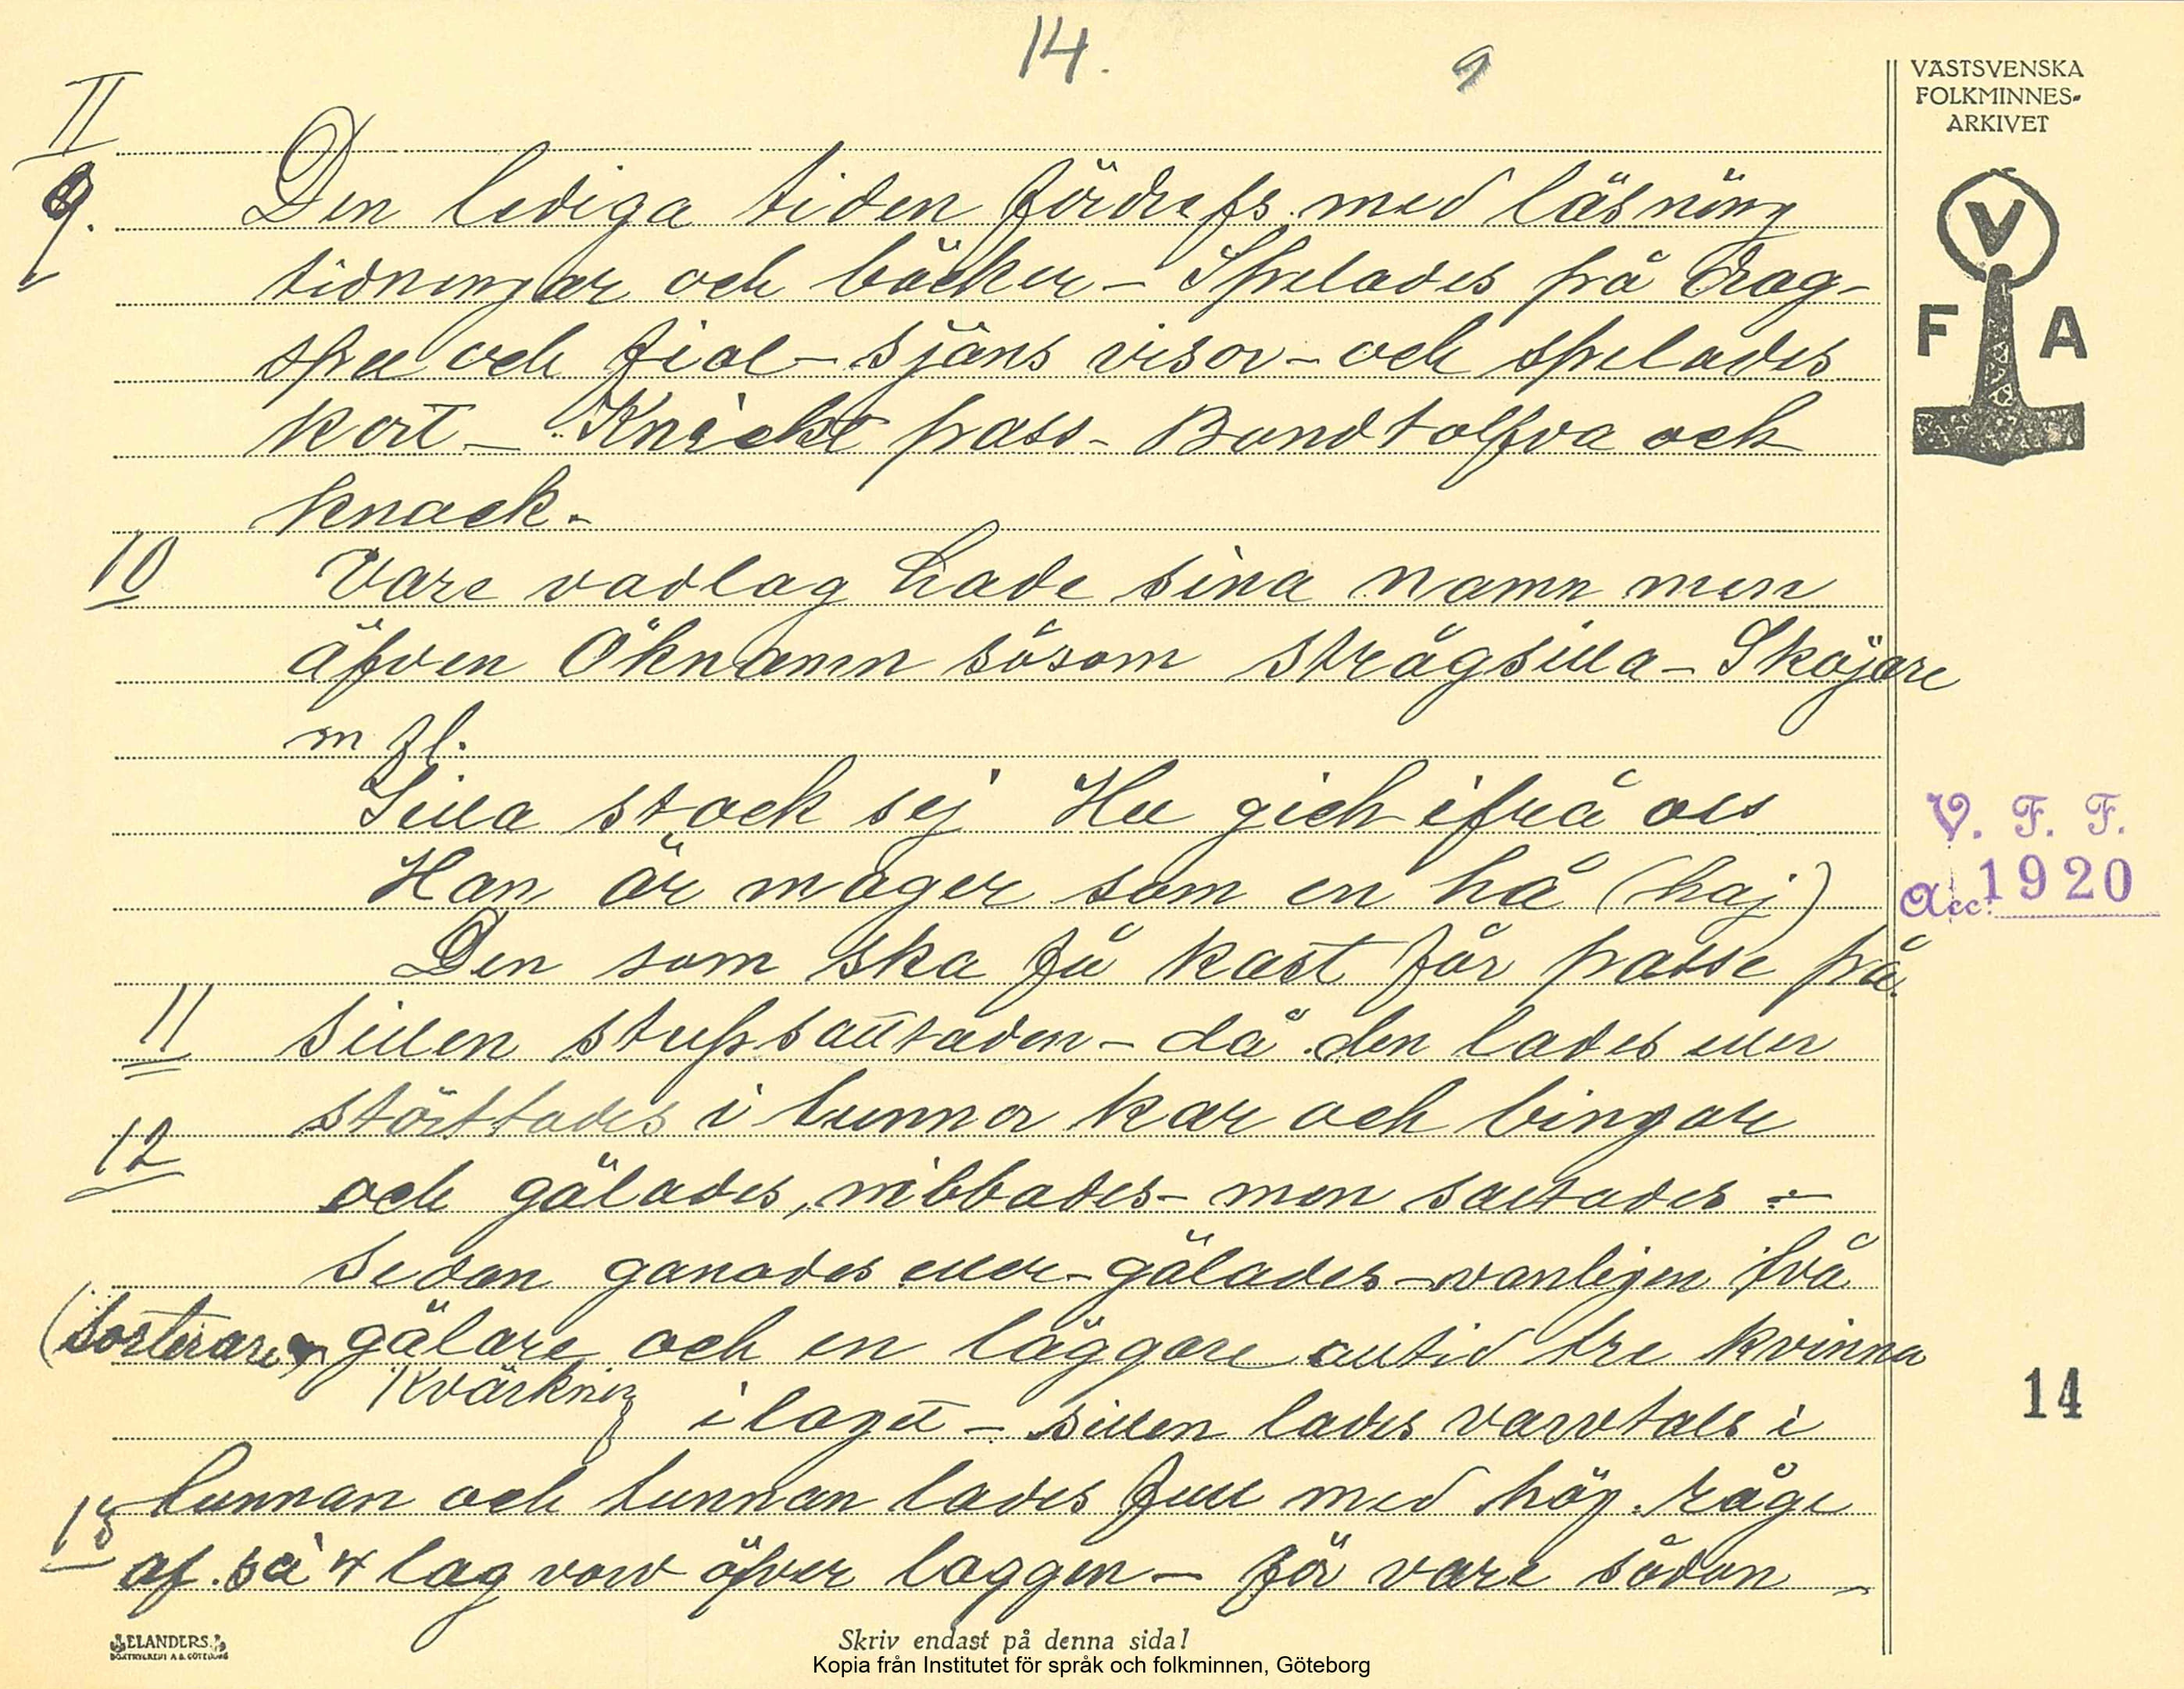 14.
9
VÄSTSVENSKA
FOLKMINNES-
ARKIVET
V
F A
II
9. Den lediga tiden fördrefs med läsning
tidningar och böcker - Spelades på drag-
spel och fiol - sjöns visor - och spelades
kort - Knickt pass - Bondtolfva och
knack.
10 Vare vadlag hade sina namn men
äfven Öknamn såsom strågsilla - Skojare
m fl.
Silla stack sej Hu gick ifrå oss
Han är mager som en hå (haj)
Den som ska få kast får passe på.
V. F. F.
Acc. 1920
11 sillen stupsaltaden - då den lades eller
störttades i tunnor kar och bingar
12 och gälades, nibbades - men saltades -
sedan ganades eller - gälades - vanligen två
(sorterare gälare och en läggare alltid tre kvinna
Kvärkning i laget - sillen lades varvtals i
14
tunnan och tunnan lades full med hög råge
13 af så 4 lag varv öfver laggen - för vare sådan -
ELANDERS
BOKTRYCKERI A.B. GÖTEBORG
Skriv endast på denna sida!
Kopia från Institutet för språk och folkminnen, Göteborg